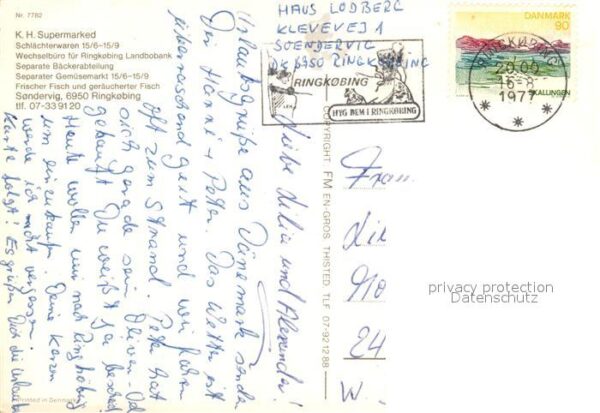 Nr. 7782
K. H. Supermarked
Schlächterwaren 15/6-15/9
Wechselbüro für Ringkøbing Landbobank
Separate Bäckerabteilung
Separater Gemüsemarkt 15/6-15/9
Frischer Fisch und geräucherter Fisch
Søndervig, 6950 Ringkøbing
tlf. 07-33 91 20
HAUS LODBERG
KLEVEVEJ 1
SOENDERVIG
DK 6950 RINGKØBING
RINGKØBING
HYG DEM I RINGKØBING
DANMARK
90
SKALLINGEN
RINGKØBING
20.00
16-8
1977
Liebe Lilia und Alexander!
Urlaubsgrüße aus Dänemark senden
Dir Hanni + Peter. Das Wetter ist
überraschend gut und wir fahren
oft zum Strand. Peter hat
sich gerade sein Oliven-Öl
gekauft. Du weißt ja bescheid
Heute wollen wir nach Ringköbing
um einzukaufen. Deine Kerzen
werde ich nicht vergessen.
Karte folgt! Es grüßen Dich die Urlauber
COPYRIGHT FM EN-GROS THISTED TLF 07-92 12 88
Frau
privacy protection
Datenschutz
Printed in Denmark